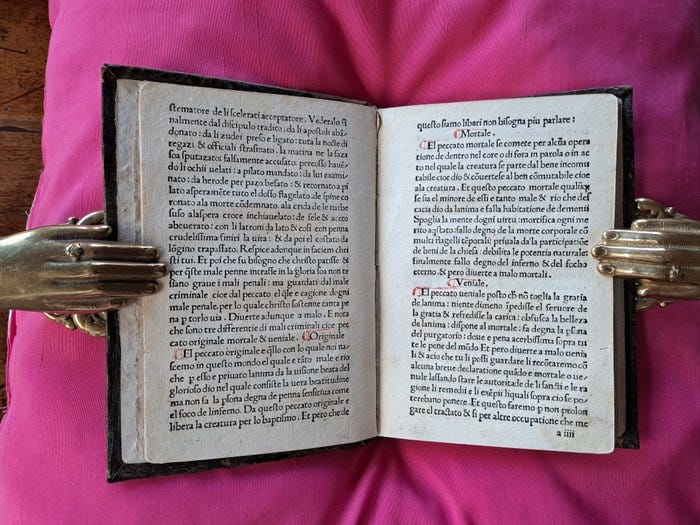 stematore de li scelerati acceptatore. Vederalo fi
nalmente dal discipulo tradito: da li apostoli abā
donato: da li zudei preso e ligato: tuta la nocte da
regazi & officiali strasinato. la matina ne la faza
soa sputazato. falsamente accusato. percosso hauē
do li ochii uelati: a pilato mandato: da lui exami
nato: da herode per pazo befato: & retornato a pi
lato asperamēte tuto el dosso flagelato. de spine co
ronato ala morte cōdemnato. ala crida de le turbe
suso alaspera croce inchiauelato: de fele & aceto
abeuerato: con li latroni da lato & cosi con penna
crudelissima finiri la uita: & da poi el costato da
lōgino trapassato. Respice adunque in faciem chri
sti tui. Et poi che su bisogno che christo patisse &
per q̄ste male penne intrasse in la gloria soa non te
siano graue i mali penali: ma guardati dal male
criminale cioe dal peccato el q̄le e cagione dogni
male penale. per lo quale christo sostenne tanta pe
na p torlo uia. Diuerte adunque a malo. E nota
che sono tre differentie di mali criminali cioe pec
cato originale mortale & ueniale. Originale
El peccato originale e q̄llo con lo quale nui na
scemo in questo mondo el quale e tāto male e rio
che p esso e priuato lanima da la uisione beata del
glorioso dio nel quale consiste la uera beatitudine
ma non fa la psona degna de penna sensiua come
el foco de linferno. Da questo peccato originale e
libera la creatura per lo baptismo. Et pero che de
questo siamo libari non bisogna piu parlare:
Mortale.
El peccato mortale se comete per alcūa opera
tione de dentro nel core o di fora in parola o in ac
to nel quale la creatura se parte dal bene incomu
tabile cioe dio & cōuertese al ben cōmutabile cioe
ala creatura. Et questo peccato mortale qualūq̄
se sia el minore de essi e tanto male & rio che des
cacia dio da lanima e falla habitatione de demonii
Spoglia la mente dogni uirtu: mortifica ogni me
rito aquistato: fallo degno de la morte corporale cō
multi flagelli tēporali: priuala da la participatiōe
de beni de la chiesa: debilita le potentia naturale:
finalmente fallo degno del inferno & del focho
eterno. & pero diuerte a malo mortali.
Veniale.
El peccato ueniale posto ch̄ nō toglia la gratia
de lanima: niente dimeno īpedisse el feruore de
la gratia & refredisse la carita: obfusca la belleza
de lanima: dispone al mortale: fa degna la psona
del purgatorio: doue e pena acerbissima sopra tu
te le pene del mōdo. Et pero diuerte a malo uenia
li & acio che tu li possi guardare li recogliaremo cō
alcuna breue declaratione quādo e mortale o ue
niale lassando stare le autoritade de li sancti e le ra
gione li remedii e li exēpii liquali sopra cio se po
terebano ponere. Et questo faremo p non prolon
gare el tractato & si per altre occupatione che me
a iiii